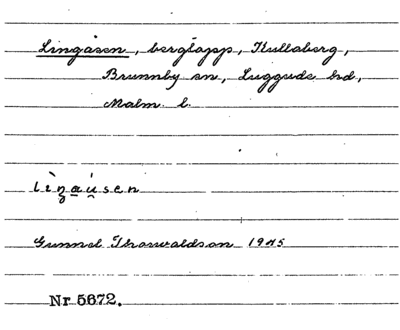 Lingåsen, bergtopp, Kullaberg,
Brunnby sn, Luggude hd,
Malm. l.
Gunnel Thorwaldson 1945
Nr 5672.